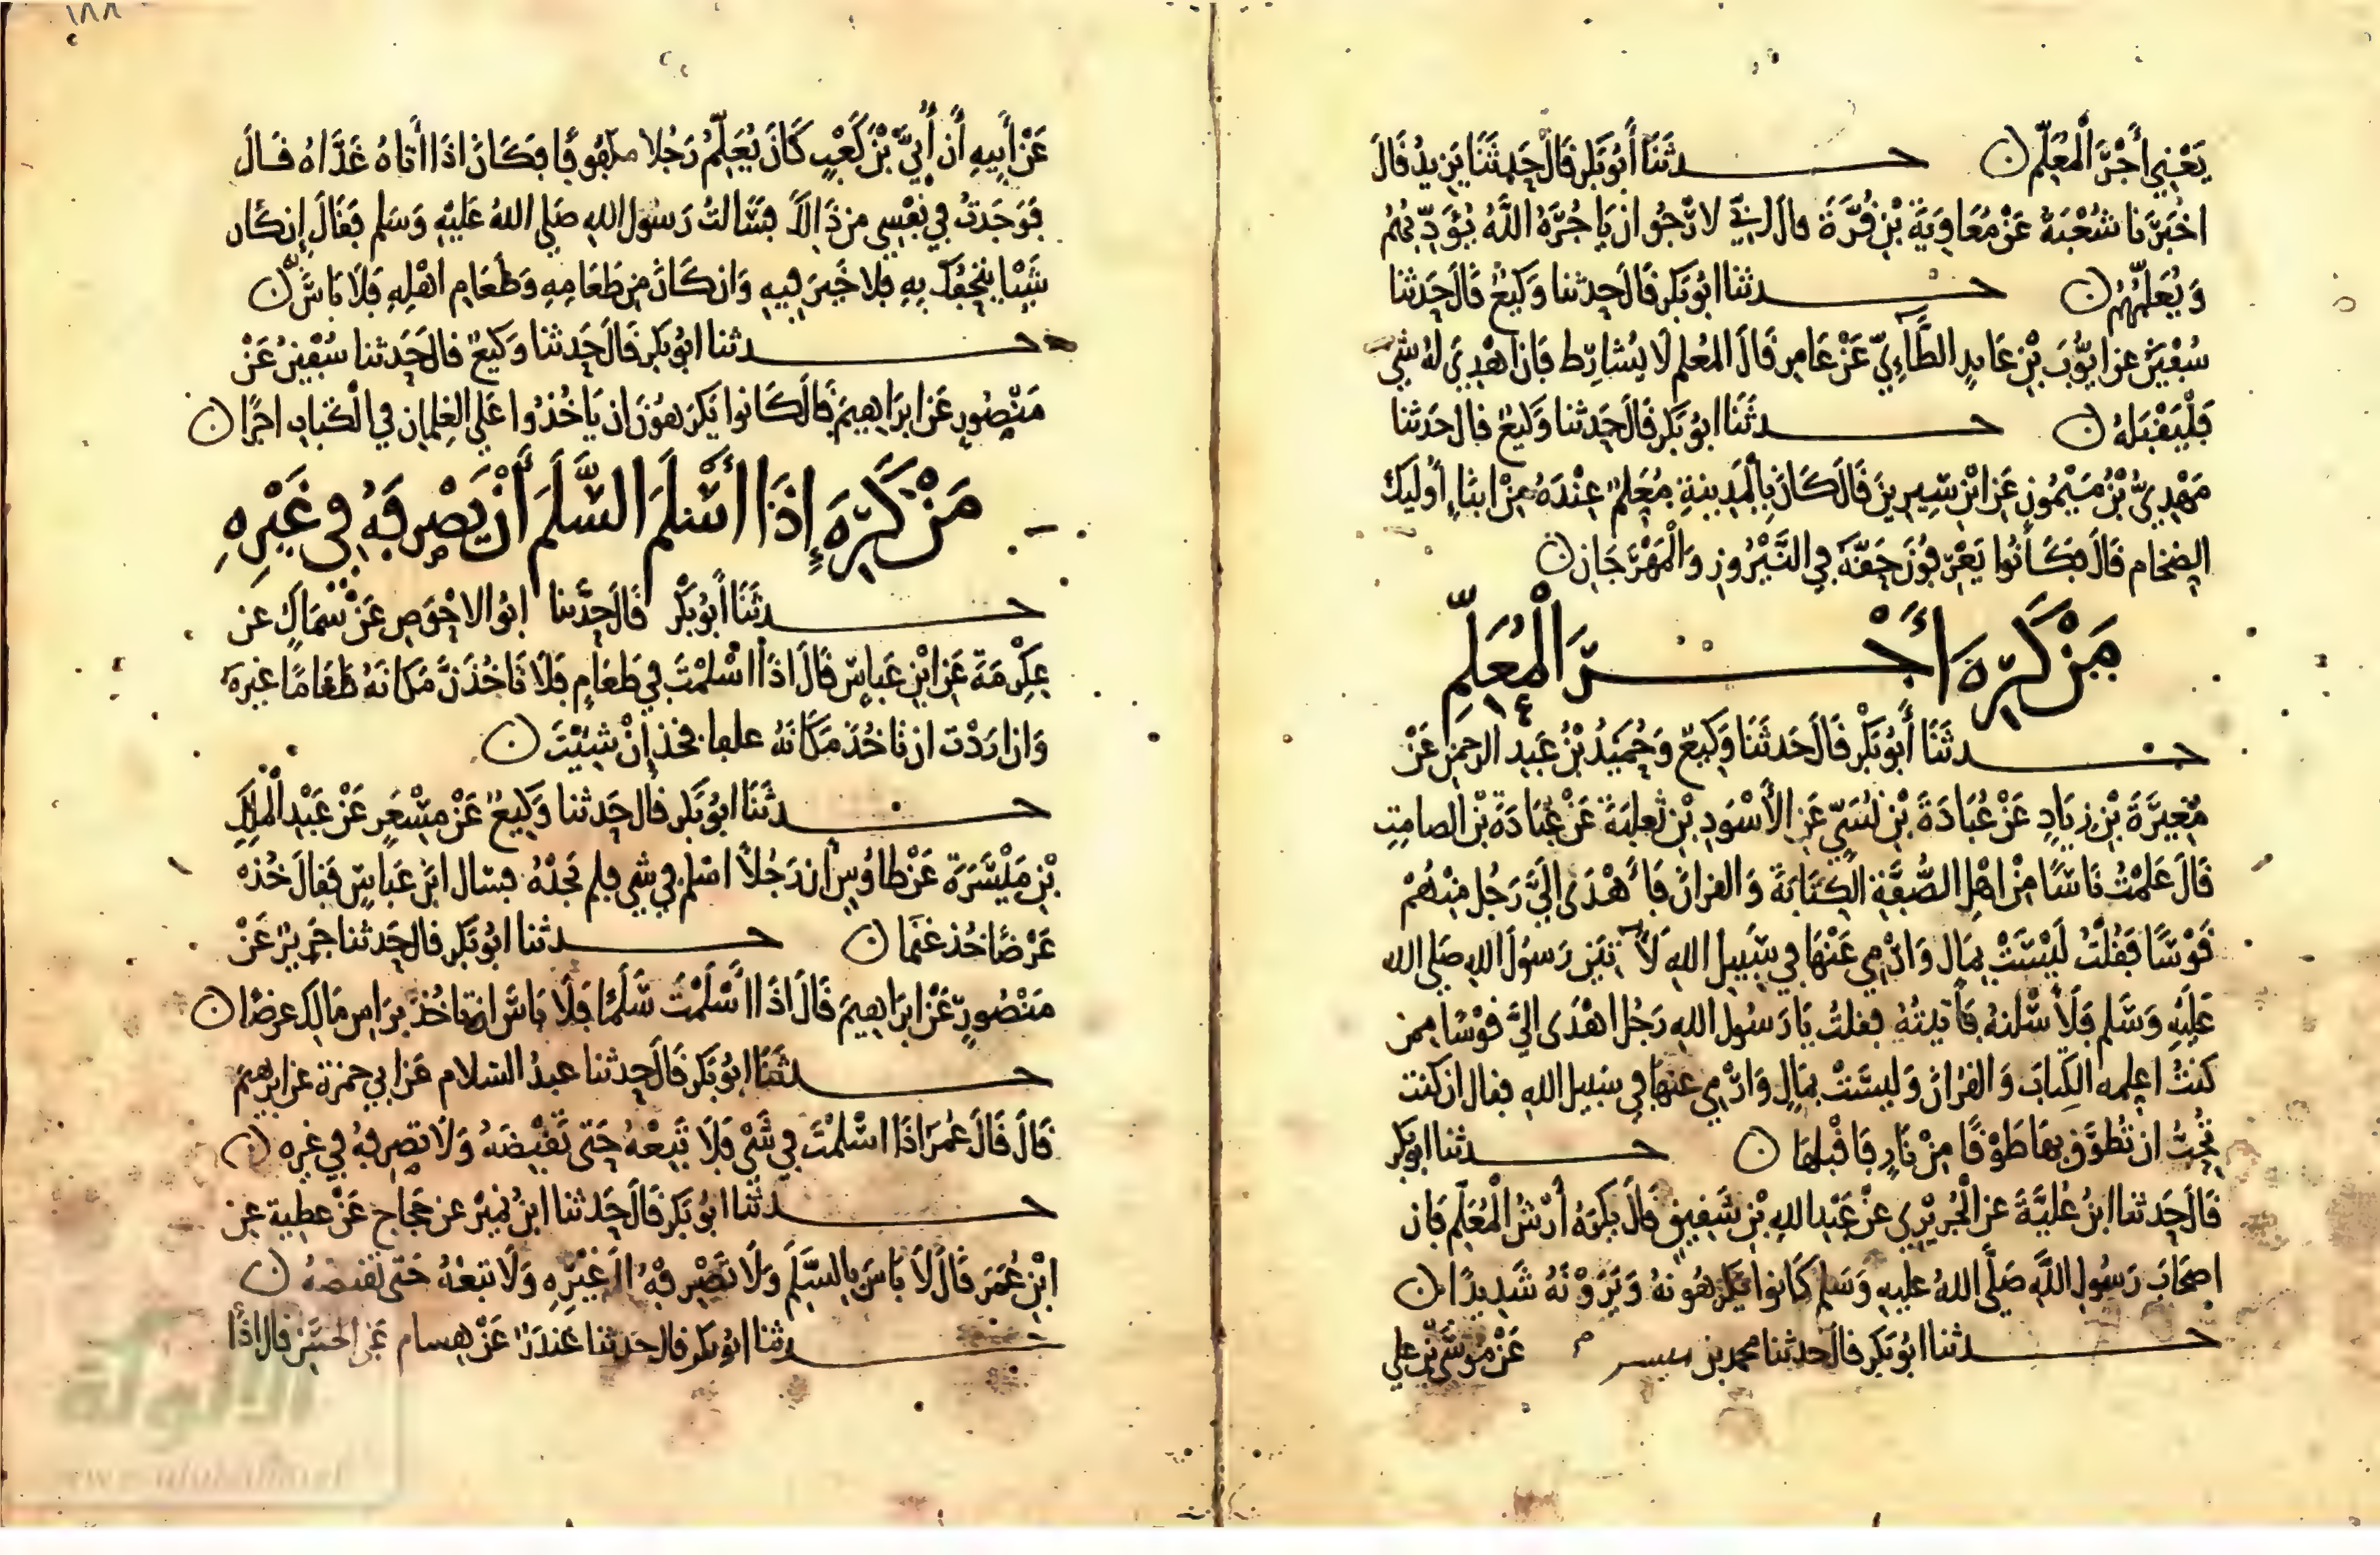 يَعْنِي أَجْرَ الْمُعَلِّمِ ن حدثَنَا أَبُو بَكْرٍ قَالَ حَدثَنَا يَزِيدُ قَالَ
اخْبَرَنَا شُعْبَةُ عَنْ مُعَاوِيَةَ بْنِ قُرَّةَ قال انِّي لارْجُو ان يَاجُرَهُ اللَّهُ يُؤَدِّبُهُمْ
وَيُعَلِّمُهُمْ ن حدثنا ابُو بَكْر قَالَ حَدثنا وَكِيعٌ قَالَ حَدثنا
سُفْيَنُ عن ايُّوبَ بْنِ عَايِدٍ الطَّاءِيِّ عَنْ عَامِر قَالَ المُعلم لَا يُشَارِط فَان اهْدِيَ لهُ شي
فَلْيَقْبَلهُ ن حدثَنَا ابُو بَكْر قَالَ حَدثنا وَكِيعٌ قال حَدثنا
مَهْدِيُّ بْنُ مَيْمُونٍ عَنِ ابْنِ سِيرِينَ قَالَ كَانَ بِالْمَدِينةِ مُعَلِمٌ عِنْدَهُ مِنْ ابنَاءِ أُوليك
الضخام قَالَ فكَانُوا يَعْرِفُونَ حَقَّهُ فِي النَّيْرُوزِ وَالْمَهْرَجَانِ ن
مَنْ كَرِهَ أَجْرَ الْمُعَلِّمِ
حدثَنَا أَبُو بَكْرٍ قَالَ حَدثَنَا وَكِيعٌ وَحُمَيْدُ بْنُ عَبد الرحمن عَنْ
مُغِيرَةَ بْنِ زِيَادٍ عَنْ عُبَادَةَ بْنِ نُسَيٍّ عَنِ الأَسْوَدِ بْنِ ثَعلبَةَ عَنْ عُبَادَةَ بْنِ الصامِتِ
قَالَ عَلمْتُ نَاسًا مِنْ اهْلِ الصُّفَّةِ الكِتَابَةَ وَالقرانَ فَأَهْدَى الَيَّ رَجُل مِنْهُمْ
قَوْسًا فَقُلْتُ لَيْسَتْ بِمَال وَارْمِي عَنْهَا فِي سَبِيلِ اللهِ لَآتِيَنَّ رَسُولَ اللهِ صَلى الله
عَلَيْهِ وَسَلم فَلَأسْلنهُ فَأتيتُهُ فقلتُ يَا رَسُولَ اللهِ رَجُل اهْدَى اليَّ قوْسًا ممن
كنتُ اعلمه الكِتابَ وَالقرانَ وَليسَتْ بمَالٍ وَارْمِي عنهَا فِي سبيل اللهِ فقال ان كنت
تُحِبُّ ان تُطوَّقَ بهَا طَوْقًا مِنْ نَارٍ فَاقْبَلهَا ن حدثنا ابو بَكر
قَالَ حَدثنا ابنُ عُليَّةَ عن الْجُرَيْرِي عَنْ عَبْدِ اللهِ بْنِ شَقِيقٍ قَالَ يكرَهُ أَرْشُ الْمُعَلِّم فَان
اصْحَابَ رَسُول اللَّهِ صَلَّى اللهُ عليهِ وَسَلم كَانوا يَكْرَهُونهُ وَيَرَوْنَهُ شَدِيدًا ن
حدثنا ابُو بَكْر قالَ حَدثنا محمد بن ميسر عَنْ مُوسَى بْنِ علي
عَنْ أَبِيهِ أَن أُبَيَّ بْنَ كَعْبٍ كَانَ يُعَلِّمُ رَجُلا مكفوفًا فكَانَ اذَا اتاهُ غَدَّاهُ قَالَ
فَوَجَدتُ فِي نفْسِي من ذَالكَ فسَالتُ رَسُول اللهِ صَلى اللهُ عَليْهِ وَسَلم فَقَالَ إِن كَان
شيْئا يتْحِفُكَ بِهِ فلا خَيرَ فِيهِ وَان كَانَ مِن طَعَامِهِ وَطَعَامِ اهْلِهِ فَلَا بَاسَ ن
حدثنا ابُو بَكر قَالَ حَدثنا وَكيعٌ قال حَدثنا سُفْيَنُ عَنْ
مَنْصُورٍ عَن ابرَاهِيمَ قَالَ كَانوا يَكرَهونَ ان يَاخُذُوا عَلى الغِلمان فِي الْكتاب اجرًا ن
مَنْ كَرِهَ إِذَا أَسْلَمَ السَّلَمَ أَنْ يَصْرِفَهُ فِي غَيْرِهِ
حدثَنَا أَبُو بَكْرٍ قَالَ حَدَّثنا ابُو الاحْوَصِ عَنْ سْمَاكٍ عن
عِكْرِمَةَ عَن ابْنِ عَبَاسٍ قَالَ اذَا اسْلمْتَ فِي طَعَامٍ فَلَا تَاخُذَنَّ مَكَانَهُ طَعَامًا غيره
وَان ارَدْتَ ان تَاخُذَ مَكَانَهُ علفا فخذ إِنْ شِيْتَ ن
حدثَنَا ابُو بَكر قَال حَدثنا وَكِيعٌ عَنْ مِسْعَرٍ عَنْ عَبْدِ الْمَلِكِ
بْنِ مَيْسَرَةَ عَنْ طاوُسٍ ان رَجُلاً اسْلم في شي فلم يَجدْهُ فسَال ابنَ عَبَاسٍ فَقالَ خُذْ
عَرْضًا خُذ غنَمًا ن حدثنا ابُو بَكر قال حَدثنا جَرِيرٌ عَنْ
مَنْصُورٍ عَنْ ابرَاهِيمَ قَالَ اذَا اسْلَمْتَ سَلَمًا فَلَا بَاسَ ان تَاخُذ برَاسِ مَالِكَ عرضًا ن
حدثَنَا ابُو بَكر قَالَ حَدثنا عبدُ السَلام عَن ابي حمزة عن ابرهيمَ
قَالَ قَالَ عُمَرَ اذَا اسْلَمْتَ فِي شَيْ فَلَا تَبِعْهُ حَتى تَقْبِضَهُ وَلَا تصرفهُ فِي غيره ن
حدثنا ابُو بَكر قَالَ حَدثنا ابنُ نُمَيْرٍ عن حَجاج عَنْ عطِية عن
ابْنِ عُمَرَ قَالَ لَا بَاسَ بِالسَّلَمِ وَلَا تَصْرِفْهُ الَى غَيْرِهِ وَلَا تبعْهُ حَتى تقبضهُ ن
حدثنا ابُو بَكر قال حَدثنا غندَرٌ عَنْ هِسام عَنِ الحسَنِ قال اذَا